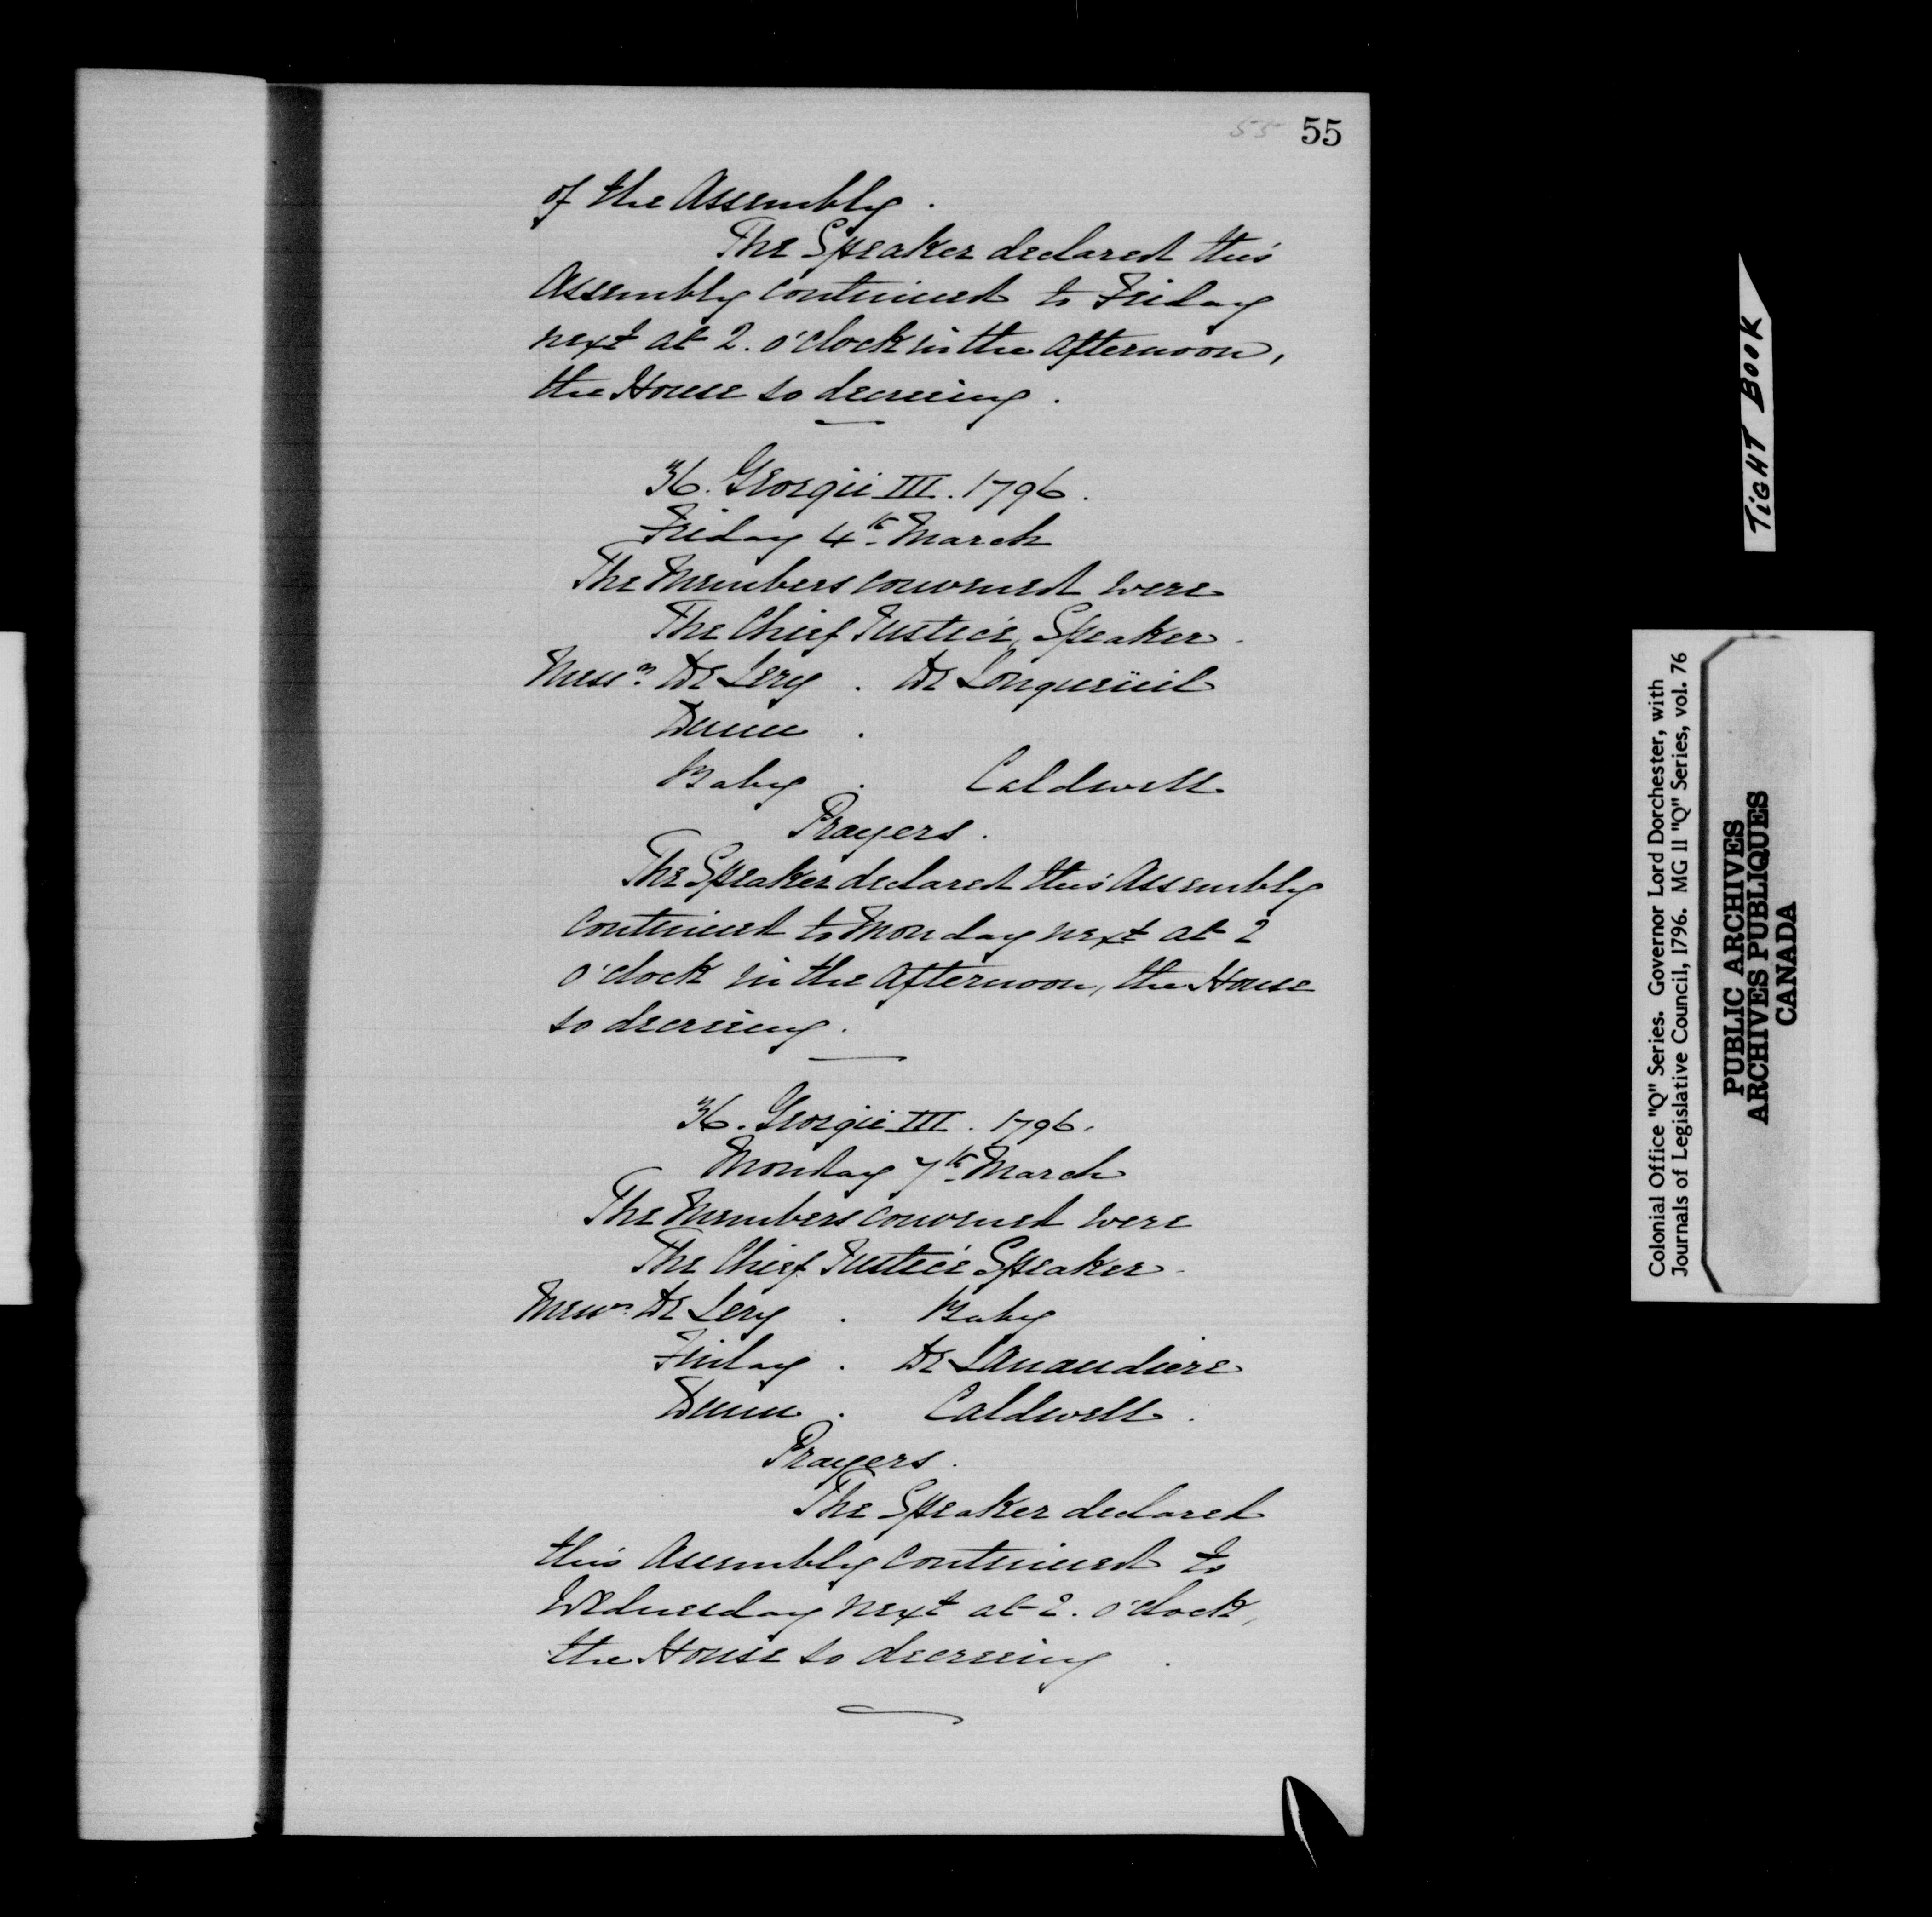 55 55
of the Assembly.
The Speaker declared this
Assembly continued to Friday
next at 2. o'clock in the afternoon,
the House so decreeing.
36. Georgii III. 1796.
Friday 4th March
The Members convened were
The Chief Justice, Speaker.
Messrs De Lery . De Longueüil
Dunn .
Baby . Caldwell
Prayers.
The Speaker declared this Assembly
continued to Monday next at 2
o'clock in the afternoon, the House
so decreeing.
36. Georgii III. 1796.
Monday 7th March
The Members convened were
The Chief Justice Speaker.
Messrs De Lery . Baby
Finlay . De Lanaudiere
Dunn . Caldwell.
Prayers.
The Speaker declared
this Assembly continued to
Wednesday next at 2. o'clock,
the House so decreeing .
TIGHT BOOK
Colonial Office "Q" Series. Governor Lord Dorchester, with
Journals of Legislative Council, 1796. MG 11 "Q" Series, vol. 76
PUBLIC ARCHIVES
ARCHIVES PUBLIQUES
CANADA